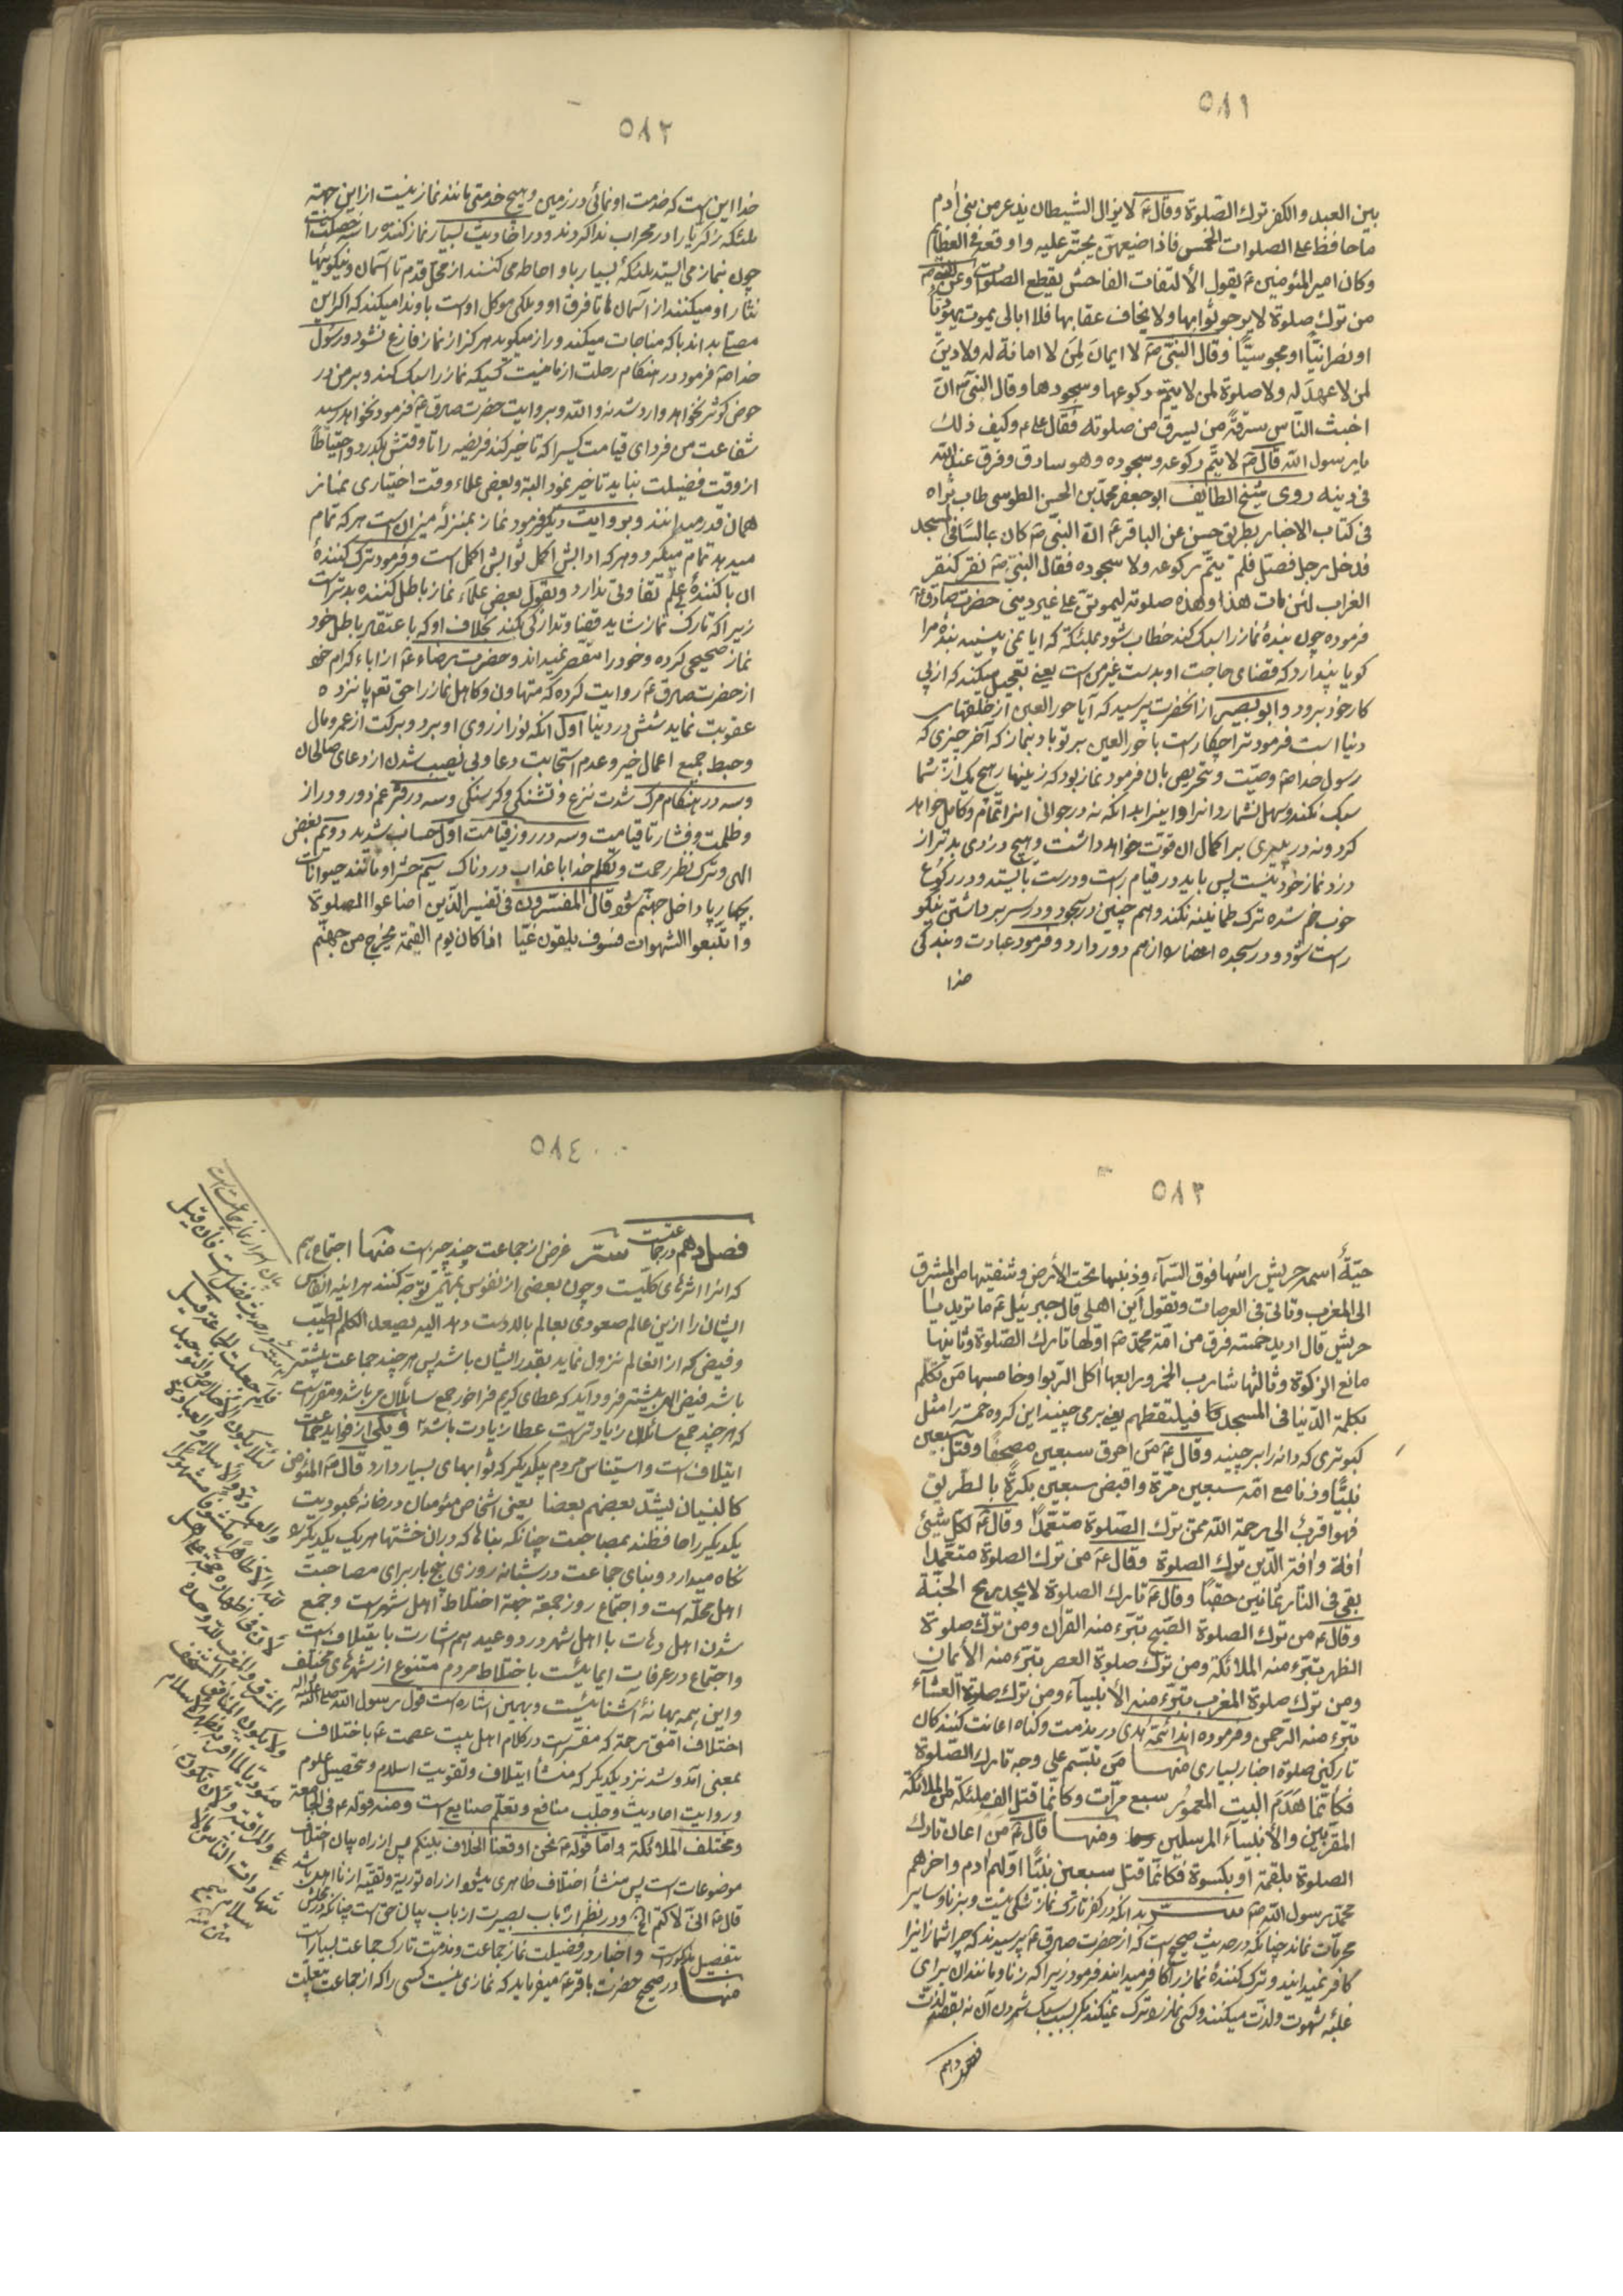 ٥٨١
بين العبد والكفر ترك الصلوة وقال ع لا يزال الشيطان يذعر من بنى أدم
ما حافظ على الصلوات الخمس فاذا ضيعهن يجترّ عليه واوقعه فى العظائم
وكان امير المئومنين ع يقول الالتفات الفاحش يقطع الصلوة وعن النبى ص
من ترك صلوة لا يرجو ثوابها ولا يخاف عقابها فلا ابالى يموت يهوديّا
او نصرانيّا او مجوسيّا وقال النبىّ ص لا ايمان لمن لا امانة له ولا دين
لمن لا عهد له ولا صلوة لمن لا يتمّ ركوعها وسجودها وقال النبى ص انّ
اخبث النّاس سرقة من يسرق من صلوته فقال على ع وكيف ذلك
يا رسول الله قال ص لا يتمّ ركوعه وسجوده وهو سارق وفرق عند الله
فى دينه روى شيخ الطايفه ابو جعفر محمد بن الحسن الطوسى طاب ثراه
فى كتاب الاخبار بطريق حسن عن الباقر ع انّ النبىّ ص كان جالسا فى المسجد
فدخل رجل فصلّى فلم يتمّ ركوعه ولا سجوده فقال النبىّ ص نقر كنقر
الغراب لئن مات هذا وهذه صلوته ليموتنّ على غير دينى حضرت صادق ع
فرموده چون بندهٔ نماز را سبك كند خطاب شود بملئكه كه ايا نمى بينيد بندهٔ مرا
كويا پندارد كه قضاى حاجت او بدست غير من است يعنى تعجيل ميكند كه از پى
كار خود برود وابو بصير از انحضرت پرسيد كه آيا حور العين از خلقهاى
دنيا است فرمود ترا چكار است با حور العين بر تو باد بنماز كه آخر چيزى كه
رسول خدا ص وصيّت وتحريص بان فرمود نماز بود كه زينهار هيچ يك از شما
سبك نكند وسهل نشمارد انرا
كردو نه در پيرى بر اكمال ان قوت خواهد داشت وهيچ دزدى بدتر از
دزد نماز خود نيست پس بايد در قيام راست ودرست بايستد ودر ركوع
خوب خم شده ترك طمانينه نكند وهم چنين در سجود ودر سر برداشتن نيكو
راست شود ودر سجده اعضا را از هم دور دارد وفرمود عبادت وبندكى
خدا
٥٨٢
خدا اين است كه خدمت او نمائى در زمين وهيچ خدمتى مانند نماز نيست از اين جهة
ملئكه زكريا را در محراب ندا كردند ودر احاديث بسيار نماز كننده را سه خصلت است
چون بنماز مى ايستد ملئكهٔ بسيار باو احاطه مى كنند از محلّ قدم تا آسمان ونيكوئيها
نثار او ميكنند از آسمان ها تا فرق او وملكى موكل او است باو ندا ميكند كه اكر اين
مصلّى بداند با كه مناجات ميكند وراز ميكويد هركز از نماز فارغ نشود ورسول
خدا ص فرمود در هنكام رحلت از ما نيست كسيكه نماز را سبك كند وبر من در
حوض كوثر نخواهد وارد شد نه والله وبروايت حضرت صادق ع فرمود نخواهد رسيد
شفاعت من فرداى قيامت كسيرا كه تاخير كند فريضه را تا وقتش بكذرد واحتياطاً
از وقت فضيلت نبايد تاخير نمود البته وبعضى علماء وقت اختيارى نماز
همان قدر ميدانند وبروايت ديكر فرمود نماز بمنزلهٔ ميزان است هر كه تمام
ميدهد تمام ميكيرد وهر كه ادابش اكمل ثوابش اكمل است وفرمود ترك كنندهٔ
ان با كنندهٔ بى علم تفاوتى ندارد وبقول بعضى علماء نماز باطل كننده بدتر است
زيرا كه تارك نماز شايد قضا وتداركى كند بخلاف او كه باعتقاد باطل خود
نماز صحيحى كرده وخود را مقصر نميداند وحضرت رضاء ع از اباء كرام خود
از حضرت صادق ع روايت كرده كه متهاون وكاهل نماز را حق تعالى پانزده
عقوبت نمايد شش در دنيا اول انكه نور از روى او ببرد وبركت از عمر ومال
وحبط جميع اعمال خير وعدم استجابت دعا وبى نصيب شدن از دعاى صالحان
وسه در هنكام مرك شدت نزع وتشنكى وكرسنكى وسه در قبر غم دور ودراز
وظلمت وفشار تا قيامت وسه در روز قيامت اوّل حساب شديد دويّم بغض
الهى وترك نظر رحمت وتكلم خدا با عذاب دردناك سيّم حشر او مانند حيوانات
بچهار پا داخل جهنّم شود قال المفسّرون فى تفسير الّذين اضاعوا الصلوة
واتّبعوا الشهوات فسوف يلقون غيّا اذا كان يوم القيمة يخرج من جهنّم
٥٨٣
حيّة اسمه حريش راسها فوق السّماء وذنبها تحت الأرض وشفتيها من المشرق
الى المغرب وتاتى فى العرصات وتقول اين اهلى قال جبرئيل ع ما تريد يا
حريش قال اريد خمسة فرق من امّة محمّد ص اوّلها تارك الصّلوة وثانيها
مانع الزكوة وثالثها شارب الخمر ورابعها اكل الرّبوا وخامسها من تكلّم
بكلمة الدّنيا فى المسجد فيلتقطهم يعنى برمى چيند اين كروه خمسه را مثل
كبوترى كه دانه را برچيند وقال ع من احرق سبعين مصحفا وقتل سبعين
نبيّا وزنا مع امّه سبعين مرّة وافتض سبعين بكرة بالطريق
فهو اقرب الى رحمة الله ممّن ترك الصّلوة متعمّداً وقال ع لكلّ شيئ
أفة وأفة الدّين ترك الصلوة وقال ع من ترك الصلوة متعمّدا
بقى فى النّار ثمانين حقبا وقال ع تارك الصلوة لا يجد ريح الجنّة
وقال ع من ترك الصلوة الصّبح تبرّء منه القران ومن ترك صلوة
الظهر تبرّء منه الملائكة ومن ترك صلوة العصر تبرّء منه الأيمان
ومن ترك صلوة المغرب تبرّء منه الأنبياء ومن ترك صلوة العشاء
تبرّء منه الرّحمن وفرموده اند ائمّهٔ هدى در مذمت وكناه اعانت كنندكان
تاركين صلوة اخبار بسيارى منها من تبسّم على وجه تارك الصّلوة
فكأنّما هدم البيت المعمور سبع مرّات وكأنّما قتل الف ملئكة من الملائكة
المقرّبين والأنبياء المرسلين ومنها قال ع من اعان تارك
الصلوة بلقمة او بكسوة فكأنّما قتل سبعين نبيّا اوّلهم أدم واخرهم
محمّد رسول الله ص بدانكه در كفر تارك نماز شكى نيست وبزنا وساير
محرمات نماند چنانكه در حديث صحيح است كه از حضرت صادق ع پرسيدند كه چرا شما زانيرا
كافر نميدانيد وترك كنندهٔ نماز را كافر ميدانيد فرمود زيرا كه زنا ومانند ان براى
غلبهٔ شهوت ولذت ميكنند وكسى نماز را ترك نميكند مكر بسبب سبك شمردن آن نه بقصد لذت
فصل دهم
٥٨٤
فصل دهم در جماعتست
سرّ غرض از جماعت چند چيز است منها اجتماع هم
كه انرا اثرهاى كلّيست وچون بعضى از نفوس بمهمّى توجّه كنند هر اينه انفاس
ايشان را ازين عالم صعودى بعالم بالا دست دهد اليه يصعد الكلم الطيّب
وفيضى كه از انعالم نزول نمايد بقدر ايشان باشد پس هر چند جماعت بيشتر
باشد فيض الهى بيشتر فرود آيد كه عطاى كريم فراخور جمع سائلان مى باشد ومقرر است
كه هر چند جمع سائلان زيادتر است عطا زيادت باشد ويكى از فوايد جماعت
ايتلاف است واستيناس مردم بيكديكر كه ثوابهاى بسيار دارد قال ص المئومن
كالبنيان يشدّ بعضهم بعضا يعنى اشخاص مئومنان در خانهٔ عبوديت
يكديكر را حافظند بمصاحبت چنانكه بناها كه در ان خشتها هر يك يكديكر را
نكاه ميدارد وبناى جماعت در شبانه روزى پنج بار براى مصاحبت
اهل محلّه است واجتماع روز جمعه جهة اختلاط اهل شهر است وجمع
شدن اهل دهات با اهل شهر در دو عيد هم اشارت بايتلاف است
واجتماع در عرفات ايمائيست باختلاط مردم متنوع از شهرهاى مختلف
واين همه بهانهٔ آشنائيست وبهمين اشاره است قول رسول الله صلى الله عليه واله
اختلاف امّتى رحمة كه مفسّر است در كلام اهل بيت عصمت ع باختلاف
بمعنى آمد وشد نزد يكديكر كه منشأ ايتلاف وتقويت اسلام وتحصيل علوم
وروايت احاديث وجلب منافع وتعلّم صنايع است ومنه قوله ع فى الجامعة
ومختلف الملائكة وامّا قوله ع نحن اوقعنا الخلاف بينكم پس از راه بيان اختلاف
موضوعات است پس منشأ اختلاف ظاهرى ميشود از راه توريه وتقيه از نا اهل باشد
قال ع انّى لاكتم الخ ودر نظر ارباب بصيرت از باب بيان حق است چنانكه در محلّش
بتفصيل مذكور است واخبار در فضيلت نماز جماعت ومذمّت تارك جماعت بسيار است
منها در صحيح حضرت باقر ع ميفرمايد كه نمازى نيست كسى را كه از جماعت بيعلّت